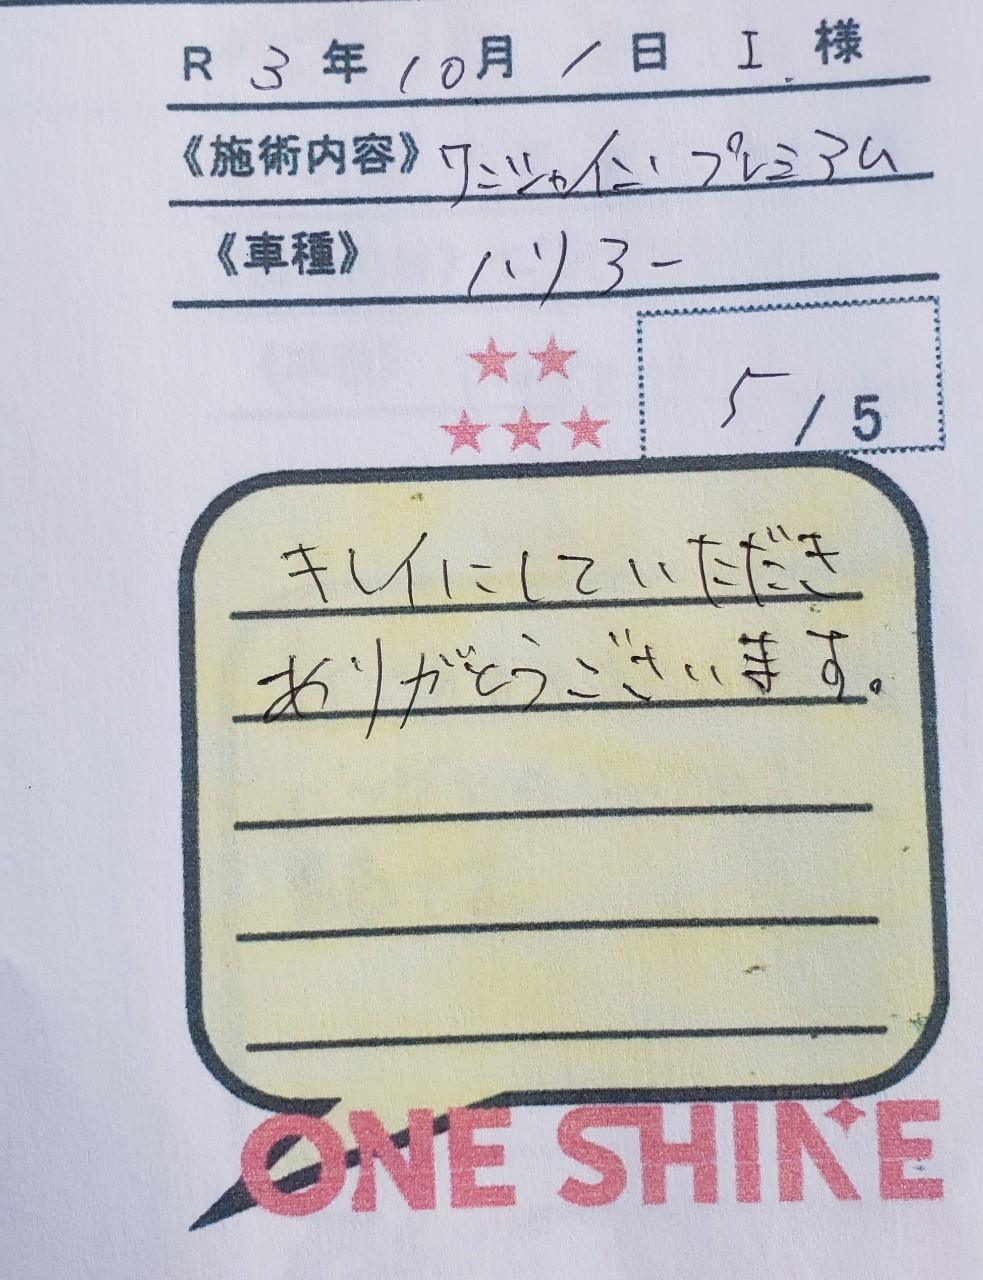 R 3年10月1日 I.様
《施術内容》ワンシャイン プレミアム
《車種》ハリアー
★★
★★★
5/5
キレイにしていただき
ありがとうございます。
ONE SHINE